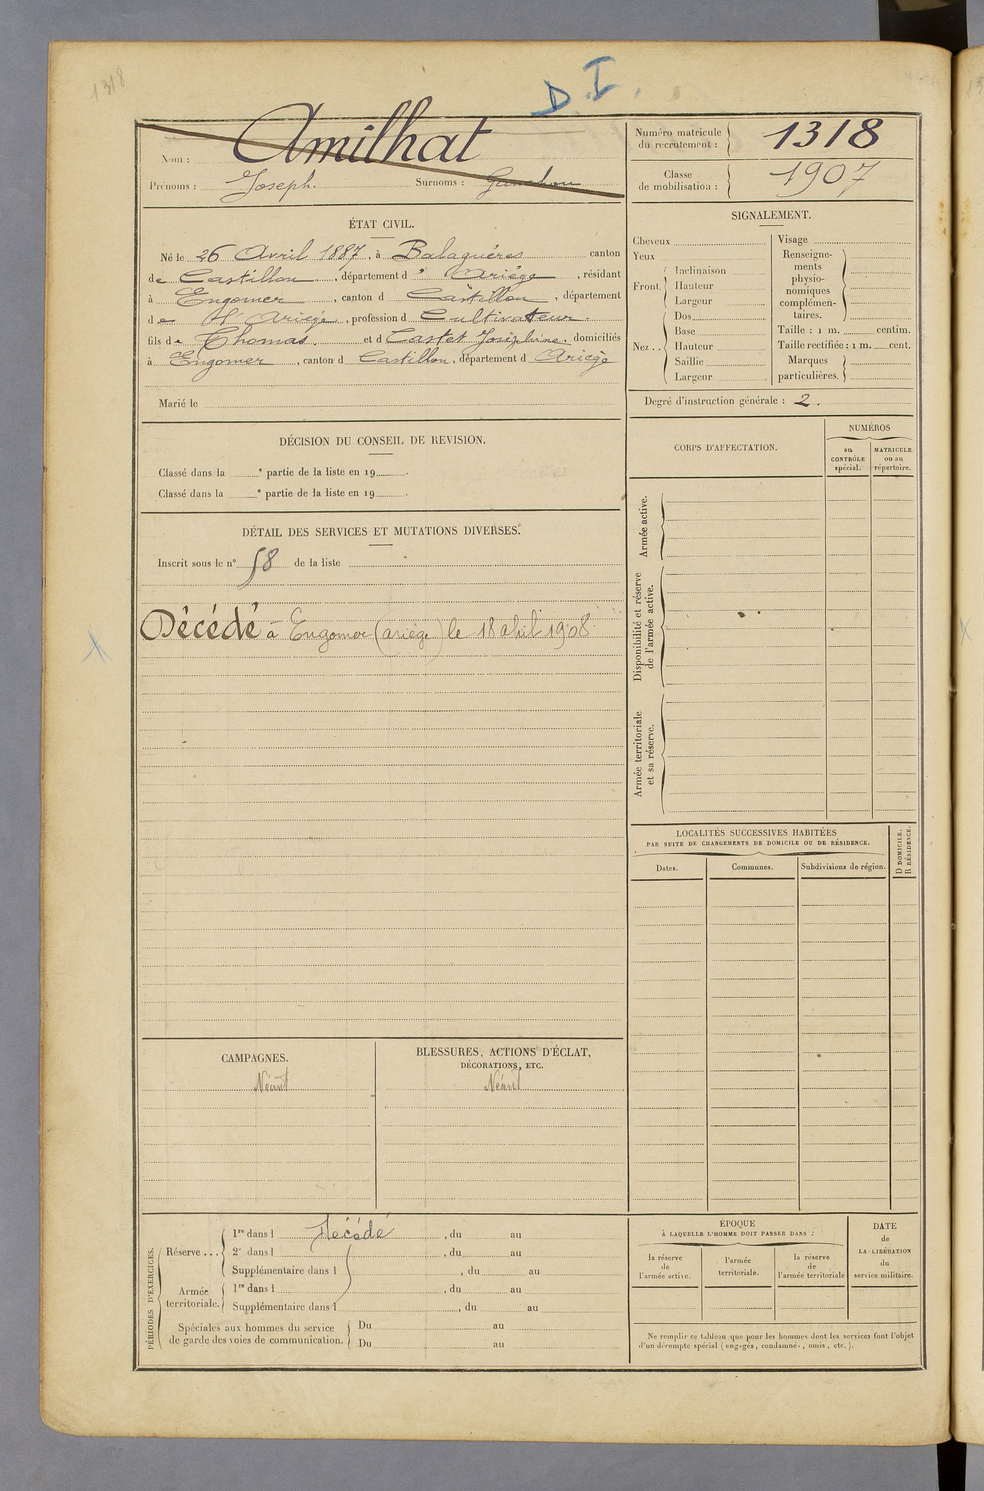 1318
D. I.
Nom : Amilhat
Prénoms : Joseph. Surnoms :
Numéro matricule du recrutement : 1318
Classe de mobilisation : 1907
ÉTAT CIVIL.
Né le 26 Avril 1887, à Balaguères canton
de Castillon, département d' Ariège, résidant
à Engomer, canton d Castillon, département
de l' Ariège, profession d Cultivateur.
fils de Thomas. et d Castet Joséphine. domiciliés
à Engomer, canton d Castillon, département d Ariège
Marié le
SIGNALEMENT.
Cheveux
Yeux
Front. Inclinaison
Hauteur
Largeur
Nez .. Dos
Base
Hauteur
Saillie
Largeur
Visage
Renseigne-
ments
physio-
nomiques
complémen-
taires.
Taille : 1 m. centim.
Taille rectifiée : 1 m. cent.
Marques
particulières.
Degré d'instruction générale : 2.
DÉCISION DU CONSEIL DE REVISION.
Classé dans la e partie de la liste en 19 .
Classé dans la e partie de la liste en 19 .
DÉTAIL DES SERVICES ET MUTATIONS DIVERSES.
Inscrit sous le n° 58 de la liste
Décédé à Engomer (ariège) le 18 abril 1908
CORPS D'AFFECTATION.
NUMÉROS
au
CONTRÔLE
spécial.
MATRICULE
ou au
répertoire.
Armée active.
Disponibilité et réserve
de l'armée active.
Armée territoriale
et sa réserve.
LOCALITÉS SUCCESSIVES HABITÉES
PAR SUITE DE CHANGEMENTS DE DOMICILE OU DE RÉSIDENCE.
D DOMICILE.
R RÉSIDENCE.
Dates. Communes. Subdivisions de région.
CAMPAGNES.
Néant
BLESSURES, ACTIONS D'ÉCLAT,
DÉCORATIONS, ETC.
Néant
PÉRIODES D'EXERCICES.
Réserve ... 1re dans l Décédé , du au
2e dans l , du au
Supplémentaire dans l , du au
Armée territoriale. 1re dans l , du au
Supplémentaire dans l , du au
Spéciales aux hommes du service
de garde des voies de communication.
Du au
Du au
ÉPOQUE
À LAQUELLE L'HOMME DOIT PASSER DANS :
la réserve
de
l'armée active.
l'armée
territoriale.
la réserve
de
l'armée territoriale
DATE
de
LA LIBÉRATION
du
service militaire.
Ne remplir ce tableau que pour les hommes dont les services font l'objet
d'un décompte spécial (engagés, condamnés, omis, etc.).